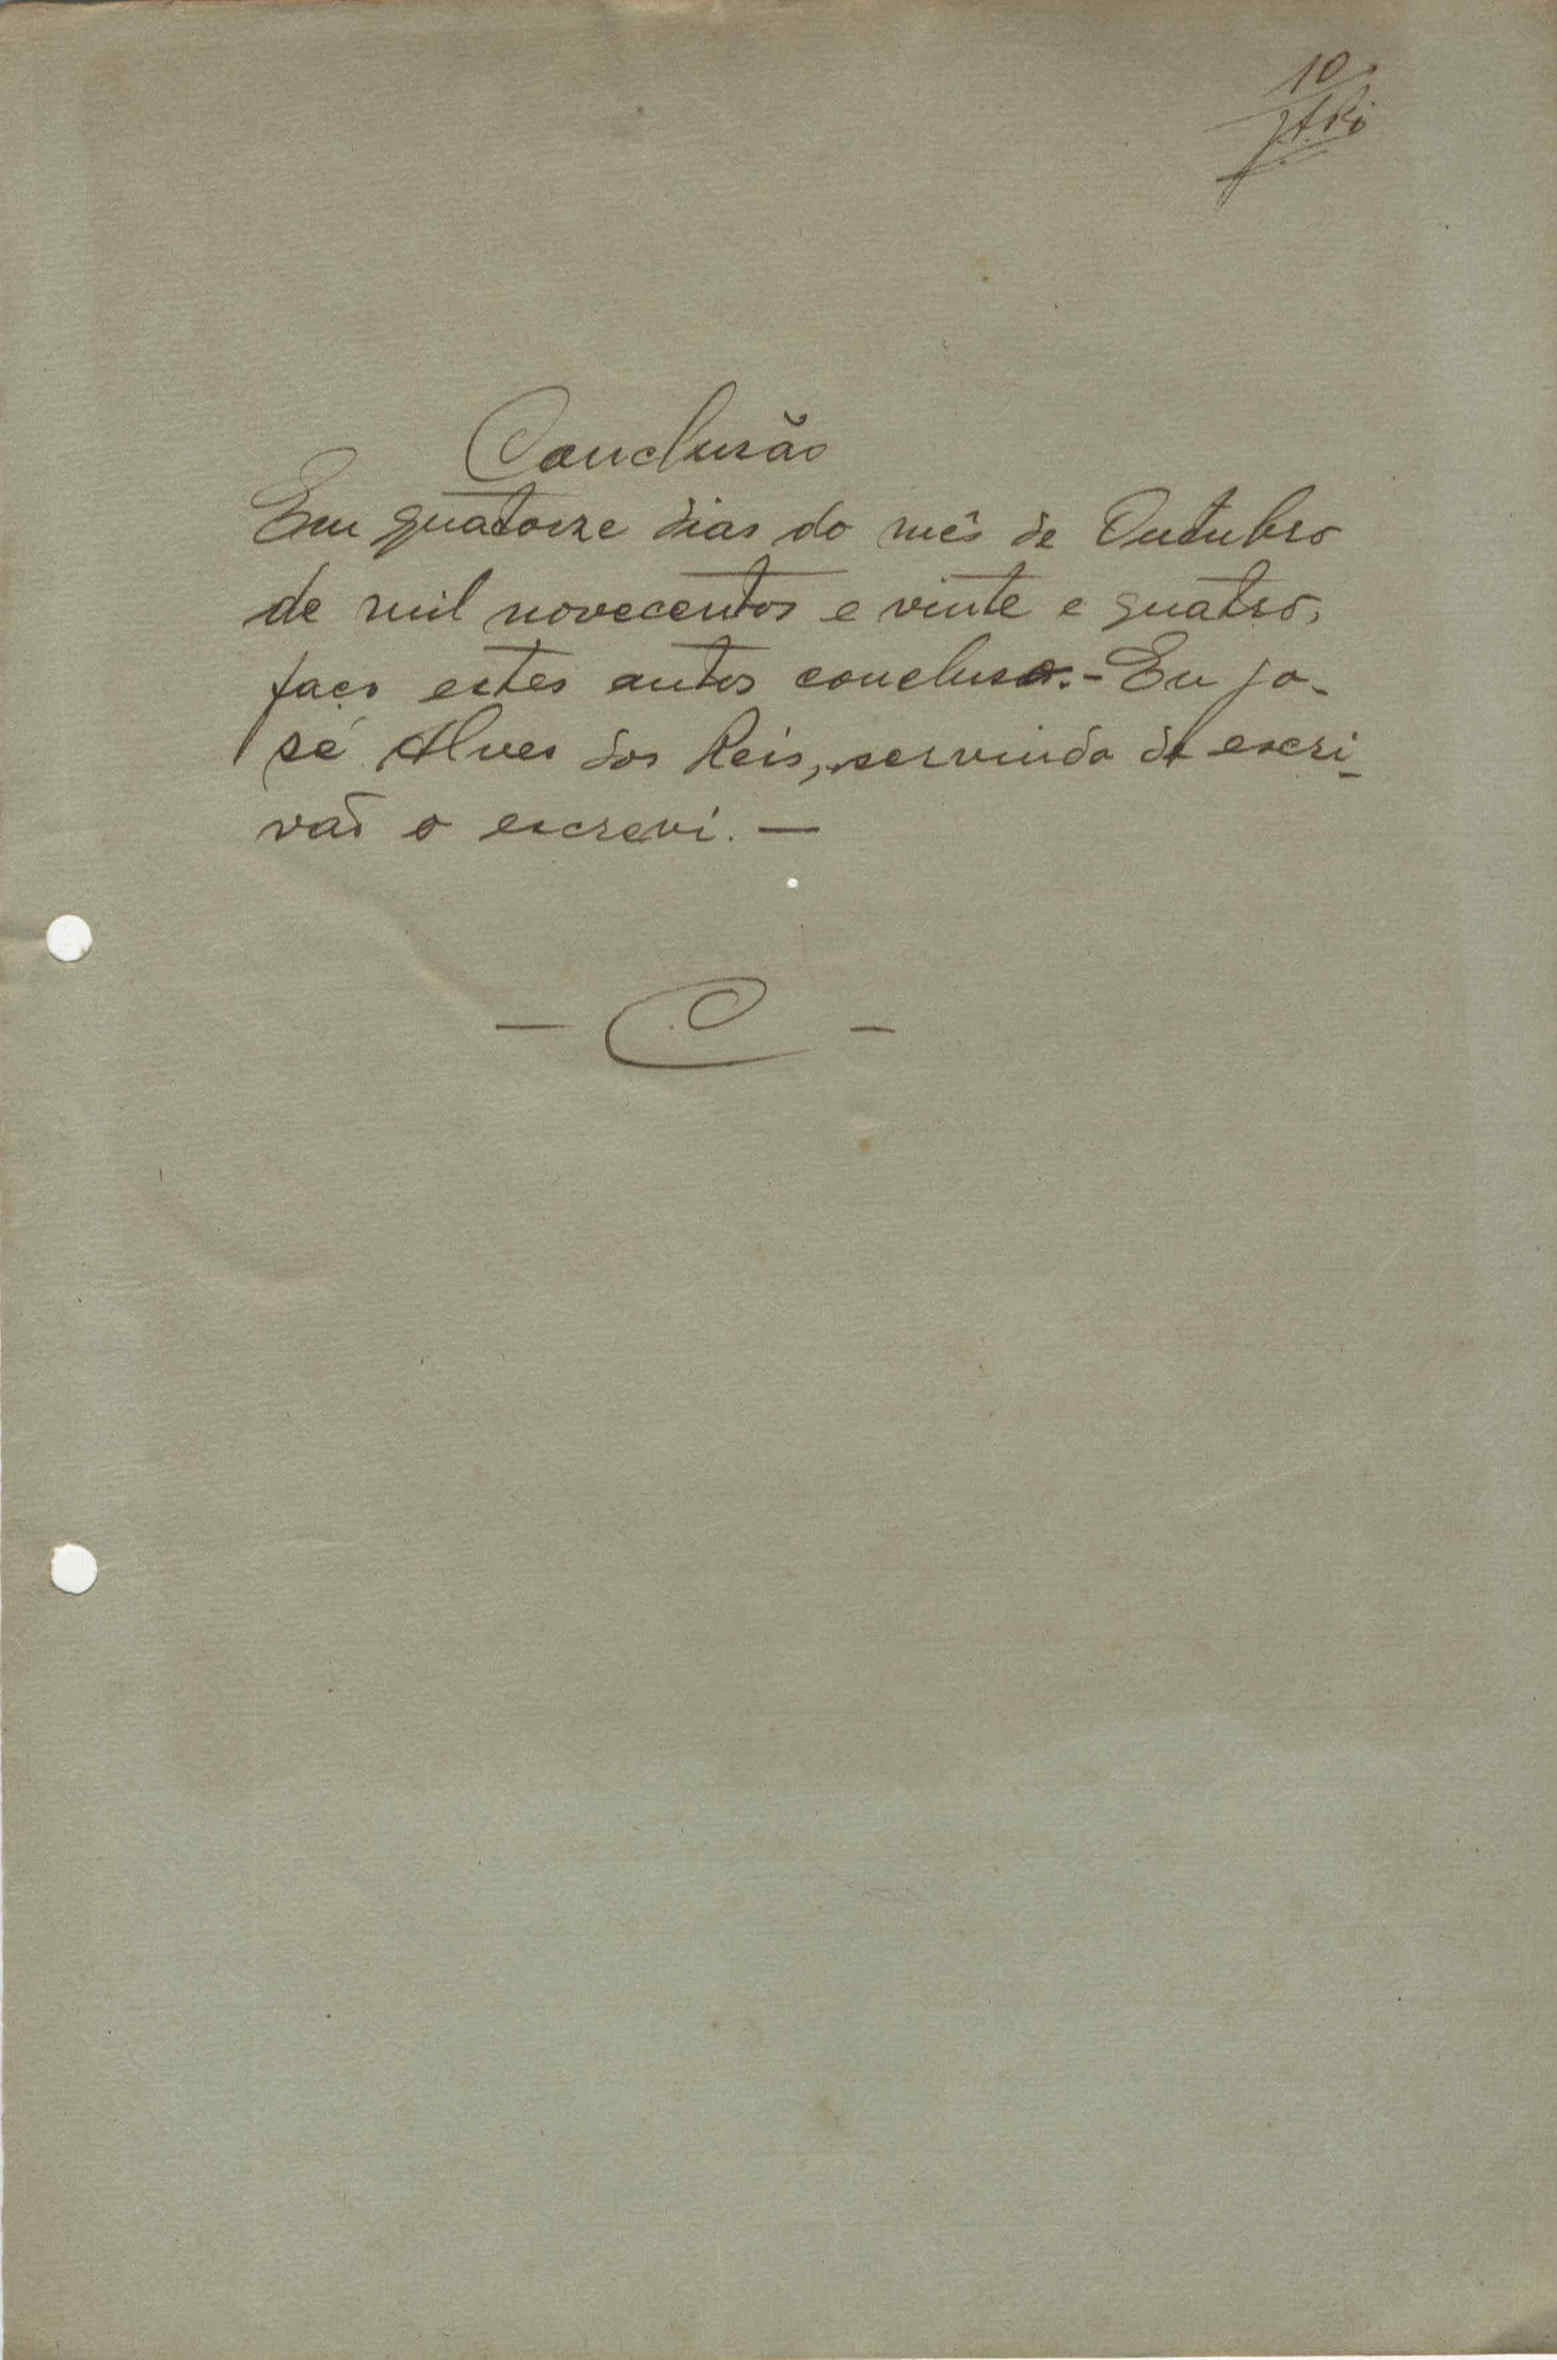 10
Conclusão
Em quatorze dias do mês de Outubro
de mil novecentos e vinte e quatro,
faço estes autos conclusos.- Eu jo-
sé Alves dos Reis, servindo de escri-
vaõ o escrevi. —
— C —